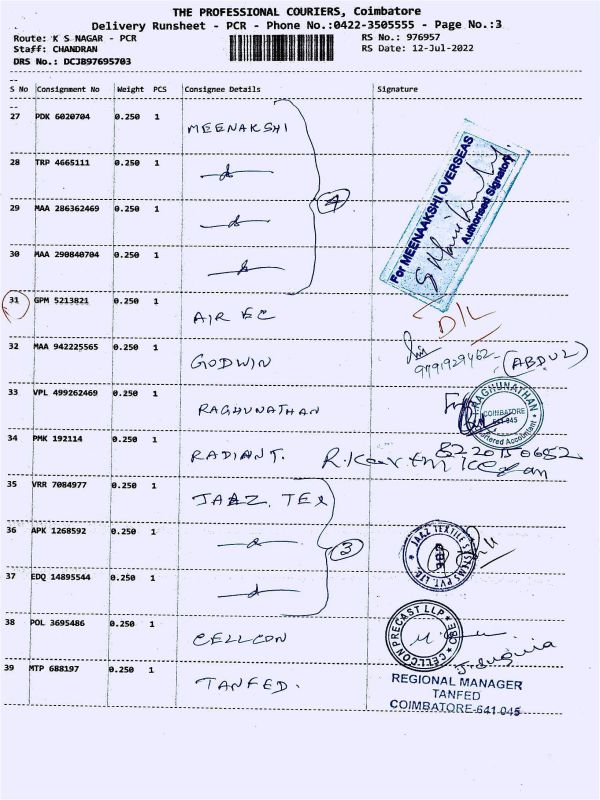 THE PROFESSIONAL COURIERS, Coimbatore
Delivery Runsheet - PCR - Phone No.:0422-3505555 - Page No.:3
Route: K S NAGAR - PCR
Staff: CHANDRAN
DRS No.: DCJB97695703
RS No.: 976957
RS Date: 12-Jul-2022
S No Consignment No Weight PCS Consignee Details Signature
27 PDK 6020704 0.250 1 MEENAKSHI
28 TRP 4665111 0.250 1
29 MAA 286362469 0.250 1
30 MAA 290840704 0.250 1
4
For MEENAAKSHI OVERSEAS
Authorised Signatory
31 GPM 5213821 0.250 1 AIR EC D/L
32 MAA 942225565 0.250 1 GODWIN
(ABDUL)
33 VPL 499262469 0.250 1 RAGHUNATHAN
RAGHUNATHAN
COIMBATORE
641 045
Chartered Accountant
34 PMK 192114 0.250 1 RADIANT.
35 VRR 7084977 0.250 1 JAAZ TEX
36 APK 1268592 0.250 1
37 EDQ 14895544 0.250 1
3
JAAZ TEXTILE SYSTEMS PVT. LTD.
CBE
38 POL 3695486 0.250 1 CELLCON
CELLCON PRECAST LLP
CBE
39 MTP 688197 0.250 1 TANFED.
REGIONAL MANAGER
TANFED
COIMBATORE-641 045